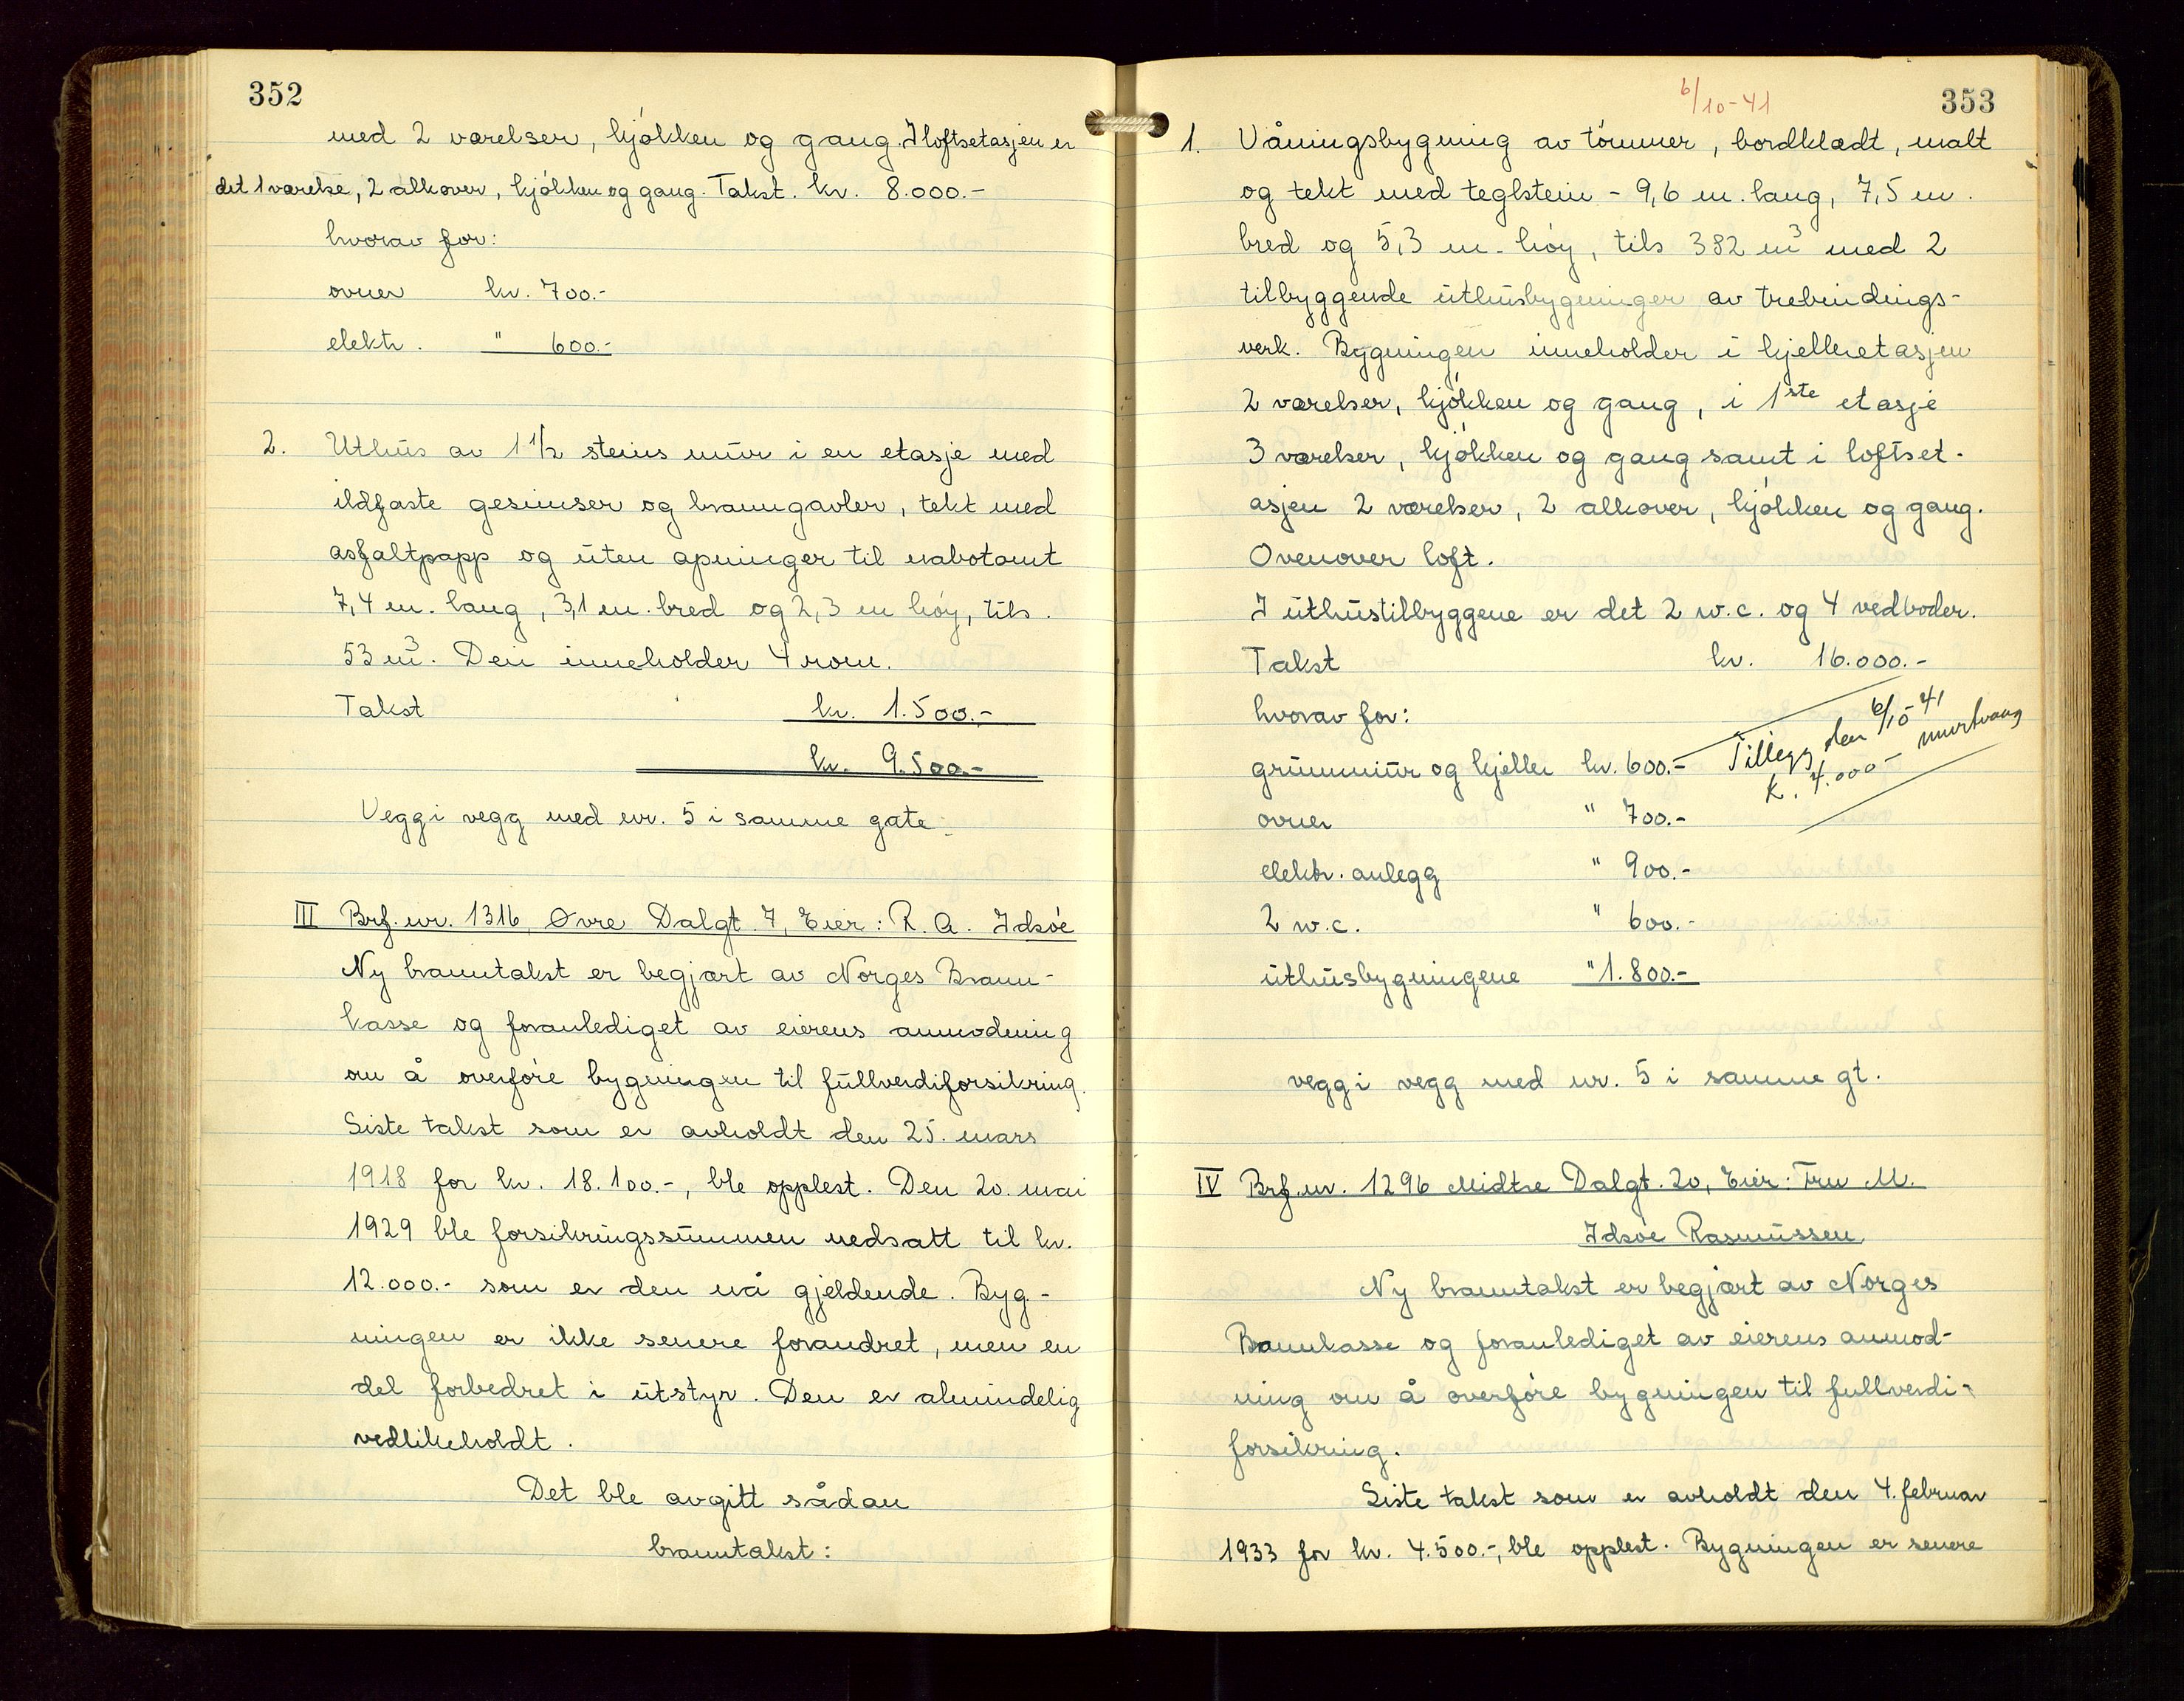 352
med 2 værelser, kjökken og gang. I loftsetasjen er
det 1 værelse, 2 alkover, kjökken og gang. Takst. kr. 8.000.-
hvorav for:
ovner kr. 700.-
elektr. " 600.-
2. Uthus av 1 1/2 steins mur i en etasje med
ildfaste gesimser og branngavler, tekt med
asfaltpapp og uten apninger til nabotomt
7,4 m. lang, 3,1 m. bred og 2,3 m höy, tils.
53 m³. Den inneholder 4 rom.
Takst kr. 1.500.-
kr. 9.500.-
Vegg i vegg med nr. 5 i samme gate.
III Brf. nr. 1316, Øvre Dalgt. 7, Eier: R. A. Idsöe
Ny branntakst er begjært av Norges Brann-
kasse og foranlediget av eierens anmodning
om å overföre bygningen til fullverdiforsikring.
Siste takst som er avholdt den 25. mars
1918 for kr. 18.100.-, ble opplest. Den 20. mai
1929 ble forsikringssummen nedsatt til kr.
12.000.- som er den nå gjeldende. Byg-
ningen er ikke senere forandret, men en
del forbedret i utstyr. Den er almindelig
vedlikeholdt.
Det ble avgitt sådan
branntakst:
6/10-41
353
1. Våningsbygning av tömmer, bordklædt, malt
og tekt med teglstein - 9,6 m. lang, 7,5 m.
bred og 5,3 m. höy, tils 382 m³ med 2
tilbyggende uthusbygninger av trebindings-
verk. Bygningen inneholder i kjelleretasjen
2 værelser, kjökken og gang, i 1ste etasje
3 værelser, kjökken og gang samt i loftset-
asjen 2 værelser, 2 alkover, kjökken og gang.
Ovenover loft.
I uthustilbyggene er det 2 w.c. og 4 vedboder.
Takst kr. 16.000.-
hvorav for:
grunnmur og kjeller kr. 600.-
Tillegg den 6/10-41
k. 4.000-
ovner " 700.-
elektr. anlegg " 900.-
2 w.c. " 600.-
uthusbygningene " 1.800.-
vegg i vegg med nr. 5 i samme gt.
IV Brf. nr. 1296 Midtre Dalgt. 20, Eier: Fru M.
Idsöe Rasmussen.
Ny branntakst er begjært av Norges
Brannkasse og foranlediget av eierens anmod-
ning om å overföre bygningen til fullverdi-
forsikring.
Siste takst som er avholdt den 4. februar
1933 for kr. 4.500.-, ble opplest. Bygningen er senere